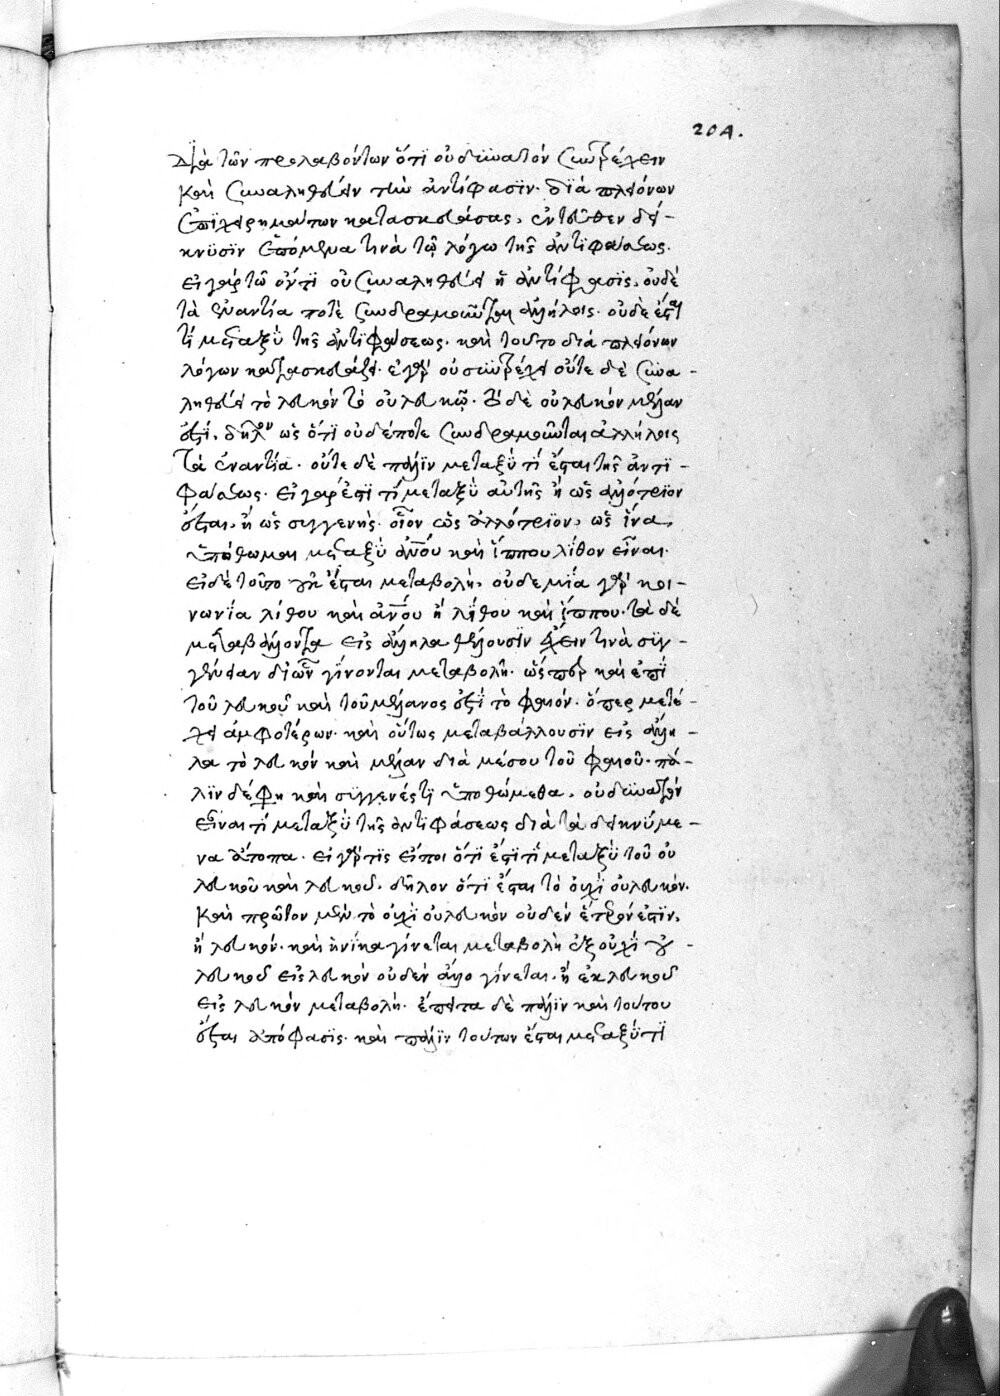 204.
Διὰ τῶν προλαβόντων ὅτι οὐ δυνατὸν συντρέχειν
καὶ συναληθεύειν τὴν ἀντίφασιν. διὰ πλειόνων
ἐπιχειρημάτων κατασκευάσας, ἐντεῦθεν δεί-
κνυσιν ἑπόμενα τινὰ τῷ λόγω τῆς ἀντιφάσεως.
εἰ γάρ τῶ ὄντι οὐ συναληθεύει ἡ ἀντίφασις, οὐδὲ
τὰ ἐναντία ποτὲ συνδραμοῦνται ἀλλήλοις. οὐδὲ ἔσται
τί μεταξὺ τῆς ἀντιφάσεως. καὶ τοῦτο διὰ πλειόνων
λόγων κατασκευάζει. εἰ γὰρ οὐ συντρέχει οὔτε δὲ συνα-
ληθεύει τὸ λευκὸν τὸ οὐ λευκῷ. τὸ δὲ οὐ λευκὸν μέλαν
ἐστί, δῆλον ὡς ὅτι οὐδέποτε συνδραμοῦνται ἀλλήλοις
τὰ ἐναντία. οὔτε δὲ πάλιν μεταξὺ τί ἔσται τῆς ἀντι-
φάσεως. εἰ γάρ ἐστι τί μεταξὺ αὐτῆς ἢ ὡς ἀλλότριον
ἔσται, ἢ ὡς συγγενὴς. οἷον ὡς ἀλλότριον, ὡς ἵνα
ὑποθώμαι μεταξὺ ἀνου καὶ ἵππου λίθον εἶναι.
εἰ δὲ τοῦτο οὐκ ἔσται μεταβολὴ, οὐδεμία γὰρ κοι-
νωνία λίθου καὶ ἀνου ἢ λίθου καὶ ἵππου. τὰ δὲ
μεταβάλλοντα εἰς ἄλληλα θέλουσιν ἔχειν τινὰ συγ-
γένειαν δι ὧν γίνονται μεταβολῆ. ὥσπερ καὶ ἐπὶ
τοῦ λευκοῦ καὶ τοῦ μέλανος ἐστὶ τὸ φαιόν. ὅπερ μετέ-
χει ἀμφοτέρων. καὶ οὕτως μεταβάλλουσιν εἰς ἄλλη-
λα τὸ λευκὸν καὶ μέλαν διὰ μέσου τοῦ φαιοῦ. πά-
λιν δέ φη καὶ συγγενές τι ὑποθώμεθα, οὐ δυνατὸν
εἶναι τί μεταξὺ τῆς ἀντιφάσεως διὰ τὰ δεικνύμε-
να ἄτοπα. εἰ γάρ τις εἴποι ὅτι ἐστί τι μεταξὺ τοῦ οὐ
λευκοῦ καὶ λευκοῦ. δῆλον ὅτι ἔσται τὸ οὐχὶ οὐ λευκόν.
καὶ πρῶτον μὲν τὸ οὐχὶ οὐ λευκὸν οὐδὲν ἕτερόν ἐστιν,
ἢ λευκόν. καὶ ἡνίκα γίνεται μεταβολὴ ἐξ οὐχὶ οὐ -
λευκοῦ εἰς λευκὸν οὐδὲν ἄλλο γίνεται, ἢ ἐκ λευκοῦ
εἰς λευκὸν μεταβολὴ. ἔπειτα δὲ πάλιν καὶ τούτου
ἔσται ἀπόφασις. καὶ πάλιν τούτων ἔσται μεταξὺ τί